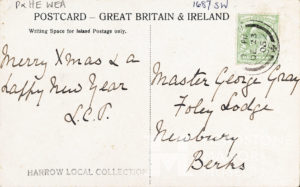 PxHE WEA
1687 SW
POSTCARD – GREAT BRITAIN & IRELAND
Writing Space for Island Postage only.
Merry Xmas & a
Happy New Year
L.C.P.
Master George Gray
Foley Lodge
Newbury
Berks
HARROW LOCAL COLLECTION